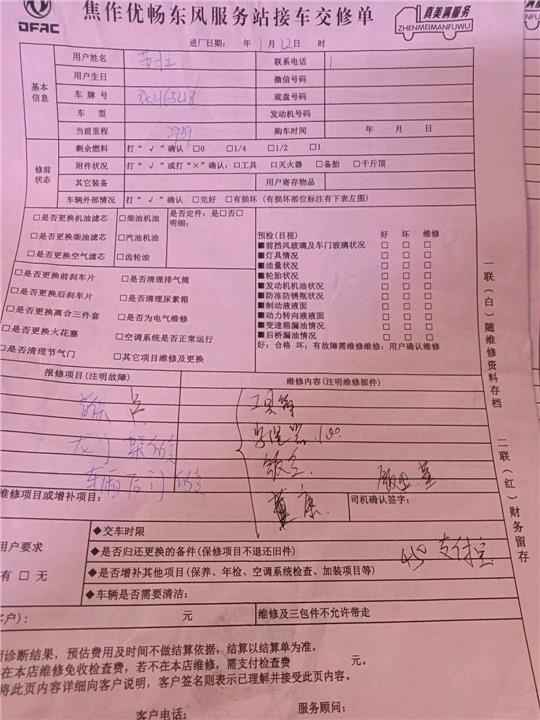 DFAC
焦作优畅东风服务站接车交修单
真美满服务
ZHENMEIMANFUWU
进厂日期: 年 1 月 12 日 时
基本信息
用户姓名 联系电话
用户生日 微信号码
车牌号 底盘号码
车 型 发动机号码
当前里程 购车时间 年 月 日
修前状态
剩余燃料 打“√”确认 □0 □1/4 □1/2 □1
附件状况 打“√”或打“×”确认:□工具 □灭火器 □备胎 □千斤顶
其它装备 用户寄存物品
车辆外部情况 打“√”确认 □完好 □有损坏 (有损坏部位标注有下表左图)
□是否更换机油滤芯 □柴油机油 是否定件:是□否□
明细:
□是否更换柴油滤芯 □汽油机油
□是否更换空气滤芯 □齿轮油
□是否更换前刹车片 □是否清理排气筒
□是否更换后刹车片 □是否清理尿素箱
□是否更换离合三件套 □是否为电气维修
□是否更换火花塞 □空调系统是否正常运行
□是否清理节气门 □其它项目维修及更换
预检(目视) 好 坏 维修
■前挡风玻璃及车门玻璃状况 □ □ □
■灯具情况 □ □ □
■油量状况 □ □ □
■轮胎状况 □ □ □
■发动机机油状况 □ □ □
■防冻防锈瓶状况 □ □ □
■制动液液面 □ □ □
■动力转向液液面 □ □ □
■变速箱漏油情况 □ □ □
■后桥漏油情况 □ □ □
好:合格 坏:有故障需维修维修:用户确认维修
报修项目(注明故障) 维修内容(注明维修部件)
工具箱
车厢后门
维修项目或增补项目: 司机确认签字:
用户要求
有 □ 无
◆交车时限
◆是否归还更换的备件(保修项目不退还旧件)
◆是否增补其他项目(保养、年检、空调系统检查、加装项目等)
◆车辆是否需要清洁:
450 支付宝
客户): 元 维修及三包件不允许带走
诊断结果,预估费用及时间不做结算依据,结算以结算单为准。
在本店维修免收检查费,若不在本店维修,需支付检查费 元。
将此页内容详细向客户说明,客户签名则表示已理解并接受此页内容。
客户电话: 服务顾问:
一联(白)随维修资料存档
二联(红)财务留存